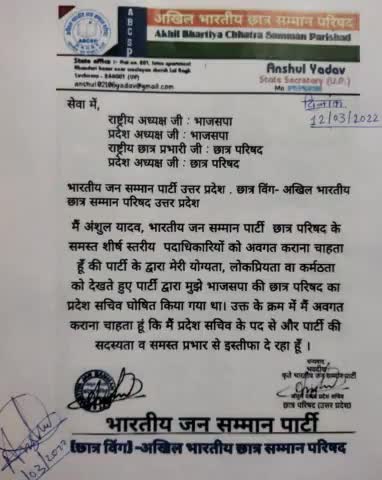 A B C S P
अखिल भारतीय छात्र सम्मान परिषद
Akhil Bhartiya Chhatra Samman Parishad
State office :- flat no. 801, lotus apartment
Lucknow - 226001 (UP)
anshul10210byadav@gmail.com
Anshul Yadav
State Secretary (U.P.)
Mo
दिनांक
12/03/2022
सेवा में,
राष्ट्रीय अध्यक्ष जी : भाजसपा
प्रदेश अध्यक्ष जी : भाजसपा
राष्ट्रीय छात्र प्रभारी जी : छात्र परिषद
प्रदेश अध्यक्ष जी : छात्र परिषद
भारतीय जन सम्मान पार्टी उत्तर प्रदेश . छात्र विंग- अखिल भारतीय
छात्र सम्मान परिषद उत्तर प्रदेश
मैं अंशुल यादव, भारतीय जन सम्मान पार्टी छात्र परिषद के
समस्त शीर्ष स्तरीय पदाधिकारियों को अवगत कराना चाहता
हूँ की पार्टी के द्वारा मेरी योग्यता, लोकप्रियता वा कर्मठता
को देखते हुए पार्टी द्वारा मुझे भाजसपा की छात्र परिषद का
प्रदेश सचिव घोषित किया गया था। उक्त के क्रम में मैं अवगत
कराना चाहता हूं कि मैं प्रदेश सचिव के पद से और पार्टी की
सदस्यता व समस्त प्रभार से इस्तीफा दे रहा हूँ ।
धन्यवाद
भवदीय
कृते भारतीय जन सम्मान पार्टी
प्रदेश सचिव
छात्र परिषद (उत्तर प्रदेश)
/03/2022
भारतीय जन सम्मान पार्टी
(छात्र विंग) -अखिल भारतीय छात्र सम्मान परिषद